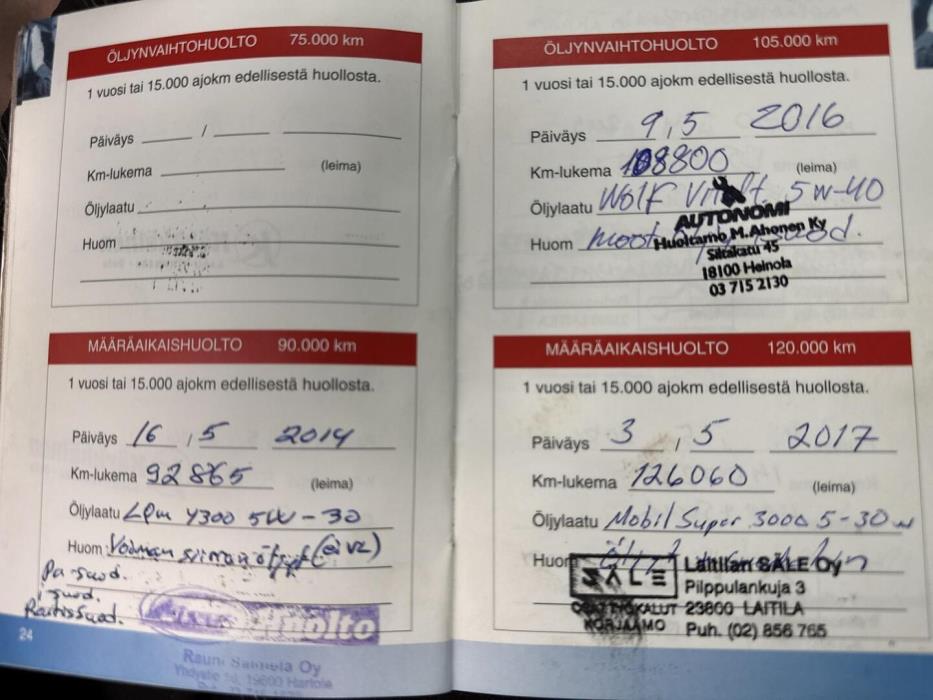 ÖLJYNVAIHTOHUOLTO 75.000 km
1 vuosi tai 15.000 ajokm edellisestä huollosta.
Päiväys /
Km-lukema (leima)
Öljylaatu
Huom
MÄÄRÄAIKAISHUOLTO 90.000 km
1 vuosi tai 15.000 ajokm edellisestä huollosta.
Päiväys 16 , 5 2014
Km-lukema 92865 (leima)
Öljylaatu LPm Y300 5W-30
Huom (ei vz)
Pa-suod.
suod.
Raitissuod.
Huolto
Rauni Oy
24
ÖLJYNVAIHTOHUOLTO 105.000 km
1 vuosi tai 15.000 ajokm edellisestä huollosta.
Päiväys 9,5 2016
Km-lukema 108800 (leima)
Öljylaatu Wolf 5w-40
Huom
AUTONOMI
Huoltamo M.Ahonen Ky
Siltakatu 45
18100 Heinola
03 715 2130
MÄÄRÄAIKAISHUOLTO 120.000 km
1 vuosi tai 15.000 ajokm edellisestä huollosta.
Päiväys 3 , 5 2017
Km-lukema 126060 (leima)
Öljylaatu Mobil Super 3000 5-30w
Huom
SÄLE
Laitilan SÄLE Oy
Pilppulankuja 3
23800 LAITILA
KORJAAMO
Puh. (02) 856 765